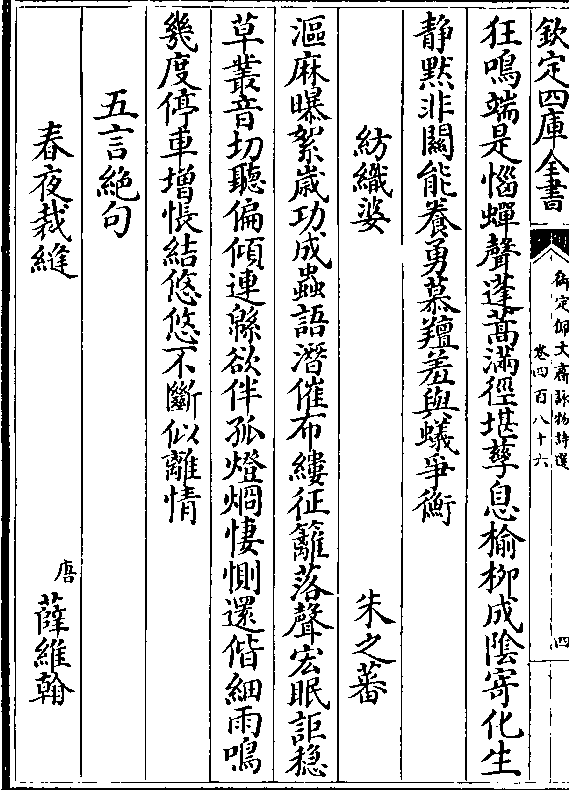 欽定四庫全書
御定佩文齋詠物詩選
卷四百八十六
四
狂鳴端是惱蟬聲蓬蒿滿徑堪孳息榆柳成陰寄化生
静黙非闗能養勇慕羶羞與蟻爭衡
紡織婆
朱之蕃
漚麻曝絮嵗功成蟲語潛催布縷征籬落聲宏眠詎穏
草叢音切聽偏傾連緜欲伴孤燈烱悽惻還偕細雨鳴
幾度停車增悵結悠悠不斷似離情
五言絶句
春夜裁縫
唐
薛維翰